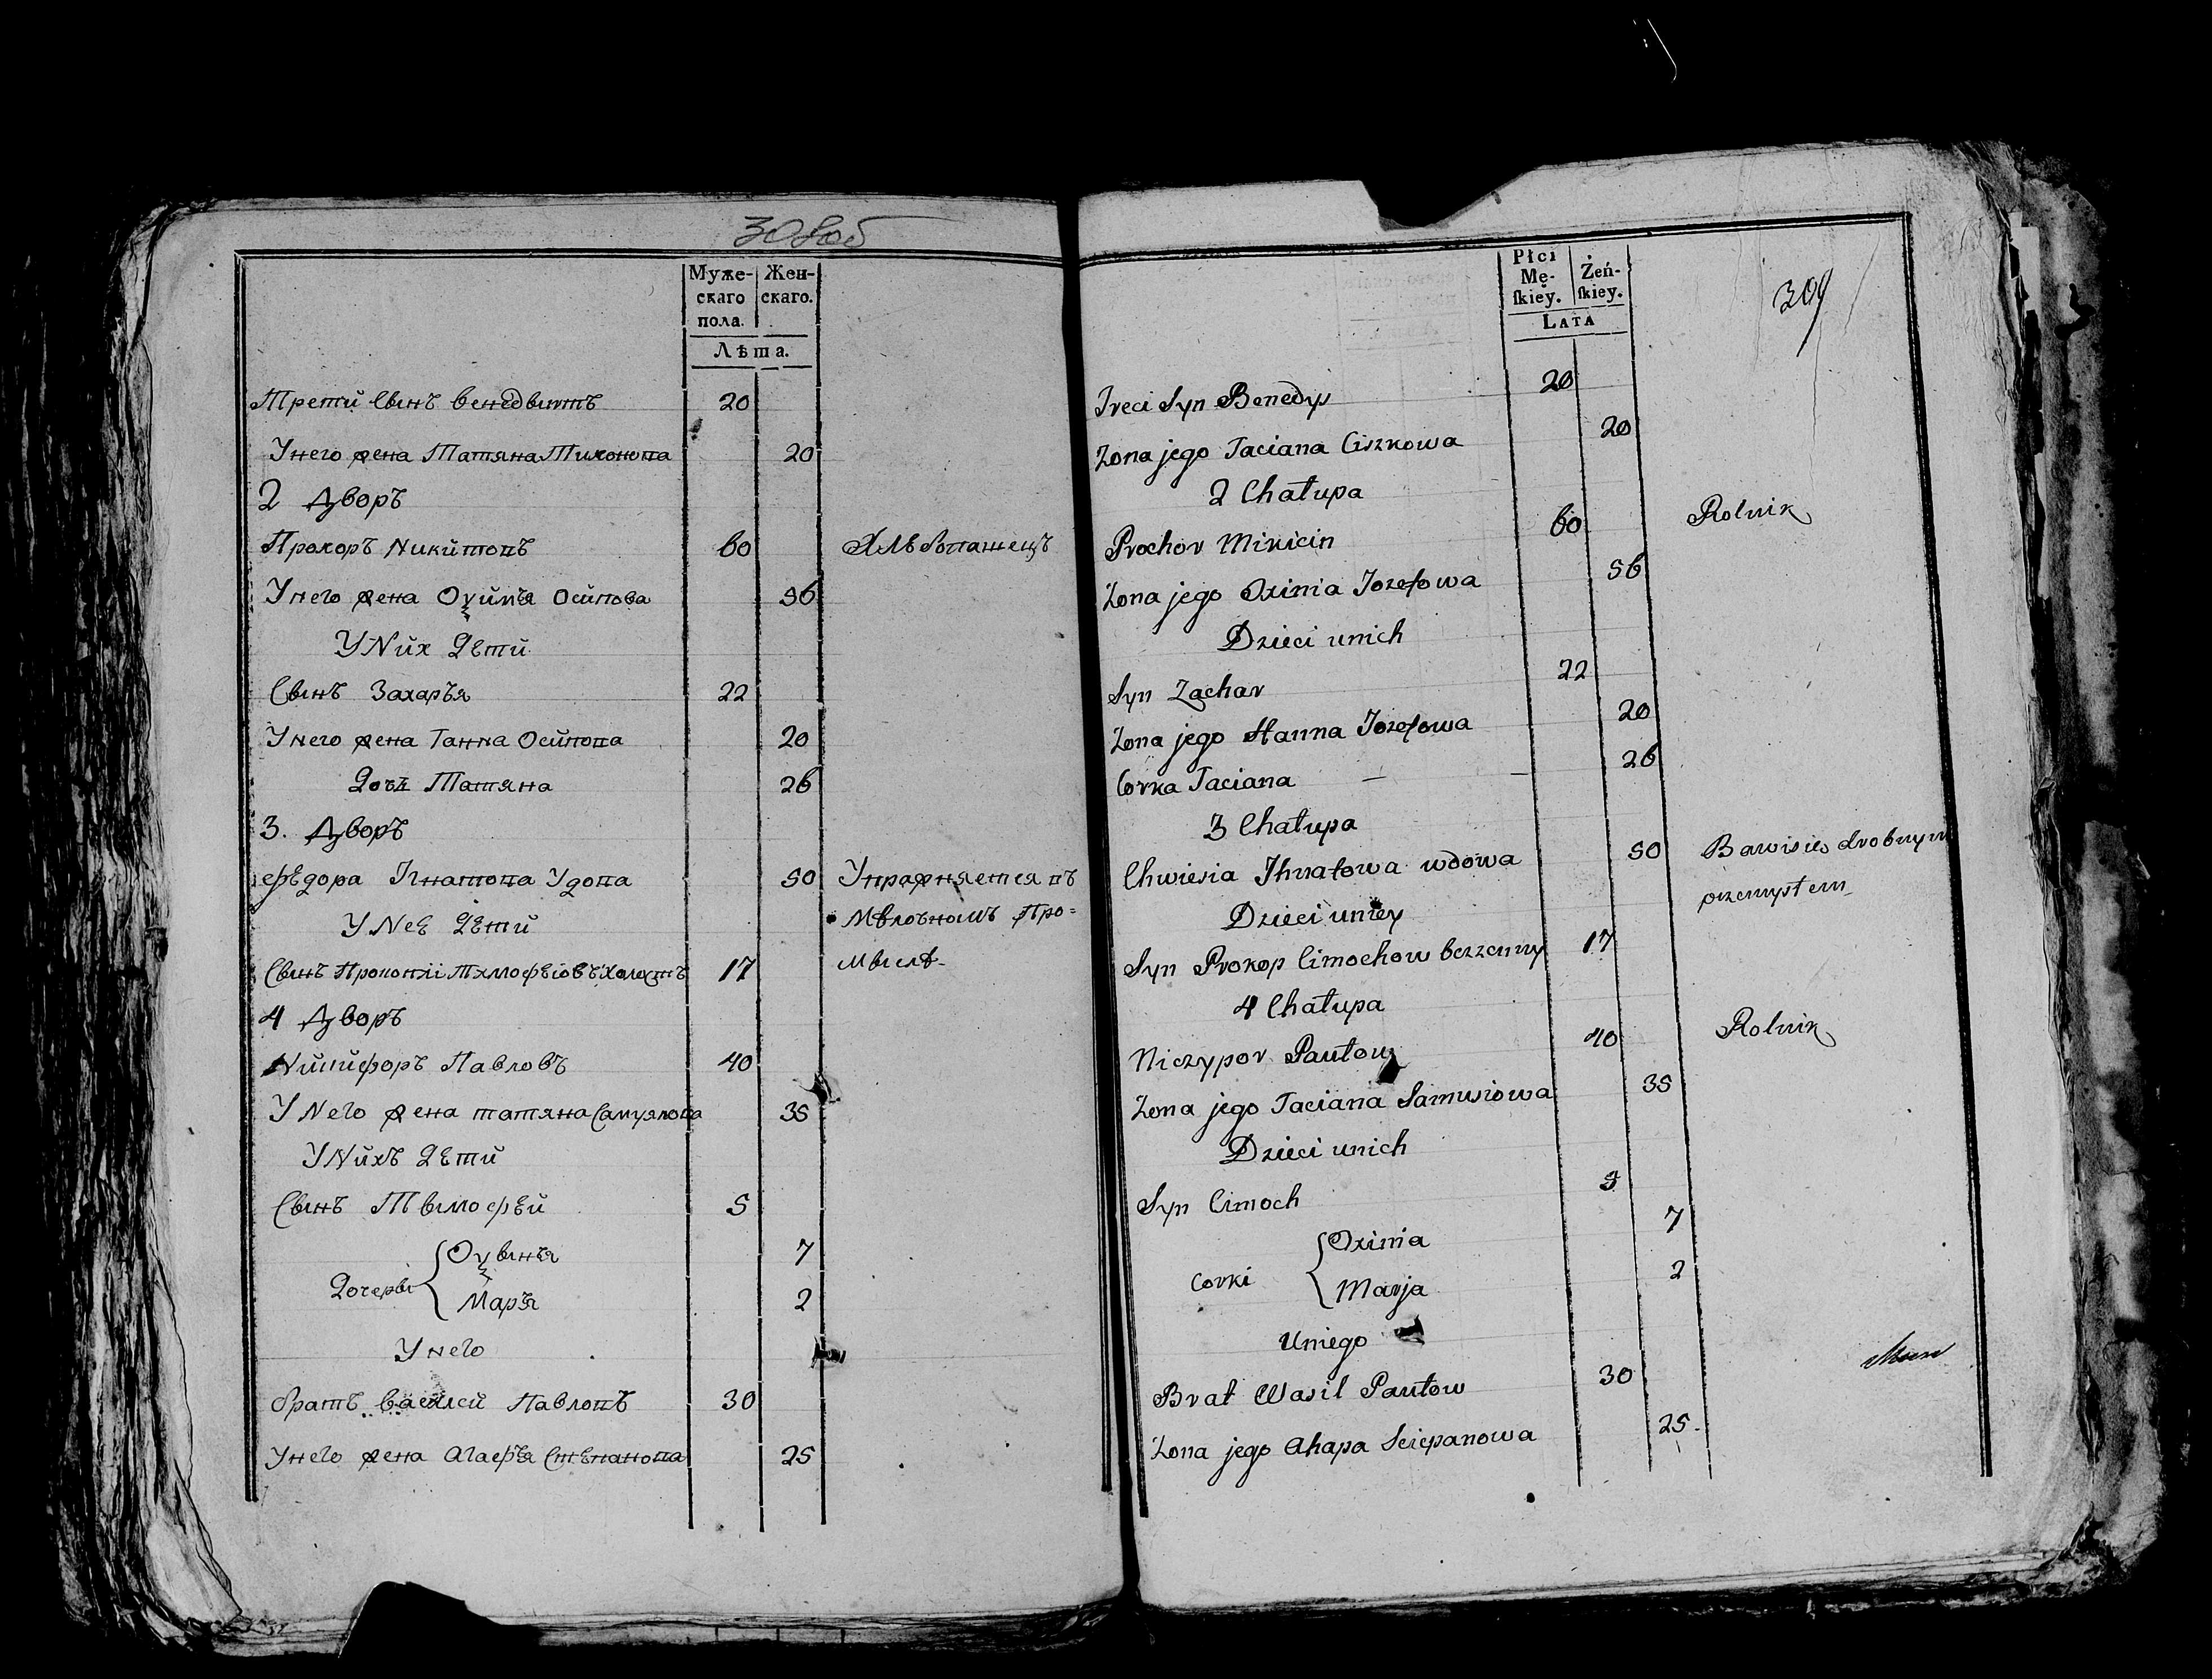 308об
Муже- Жен-
скаго скаго.
пола.
Лѣта.
Трети Сынъ Венедыктъ 20
Унего жена Татяна Тихонова 20
2 Дворъ
Прохоръ Никитовъ 60 Хлѣбопашецъ
Унего жена Оѯимъя Осипова 56
УНих Дѣти
Сынъ Захаръя 22
Унего жена Ганна Осипова 20
Дочь Татяна 26
3. Дворъ
Ѳѣдора Игнатова Удова 50 Упражняется въ
УНеѣ Дѣти Мѣлочномъ Про=
Сынъ Прокопіи Тимофѣіовъ Холостъ 17 мыслѣ
4 Дворъ
Ничипоръ Павловъ 40
УНего жена татяна Самуялова 35
УНихъ Дѣти
Сынъ Тымофѣй 5
Оѯынъя 7
Дочеры
Маръя 2
Унего
братъ Василей Павловъ 30
Унего жена Агафъя Стѣпанова 25
Płci
Mę- Żeń-
ſkiey. ſkiey.
LATA
309
Treci Syn Benedys 20
Zona jego Taciana Ciszkowa 20
2 Chałupa
Prochor Mikicin 60 Rolnik
Zona jego Oxinia Jozefowa 56
Dzieci unich
Syn Zachar 22
Zona jego Hanna Jozefowa 20
Corka Taciana — — 26
3 Chałupa
Chwiesia Ihnatowa wdowa 50 Bawisie drobnym
Dzieci uniey przemysłem
Syn Prokop Cimochow bezzenny 17
4 Chałupa
Niczypor Pautow 40 Rolnik
Zona jego Taciana Samusiowa 35
Dzieci unich
Syn Cimoch 5
Oxinia 7
Corki
Marja 2
Uniego
Brat Wasil Pautow 30
Zona jego Ahapa Sciepanowa 25